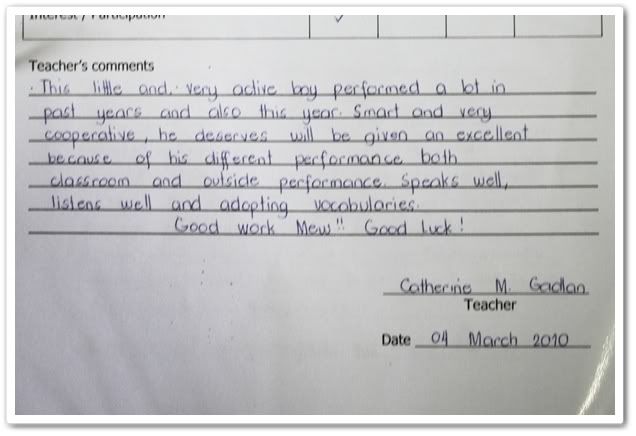 Interest / Participation
Teacher's comments
This little and, very active boy performed a lot in
past years and also this year. Smart and very
cooperative, he deserves will be given an excellent
because of his different performance both
classroom and outside performance. Speaks well,
listens well and adopting vocabularies.
Good work Mew!! Good luck!
Catherine M. Gadlan
Teacher
Date 04 March 2010